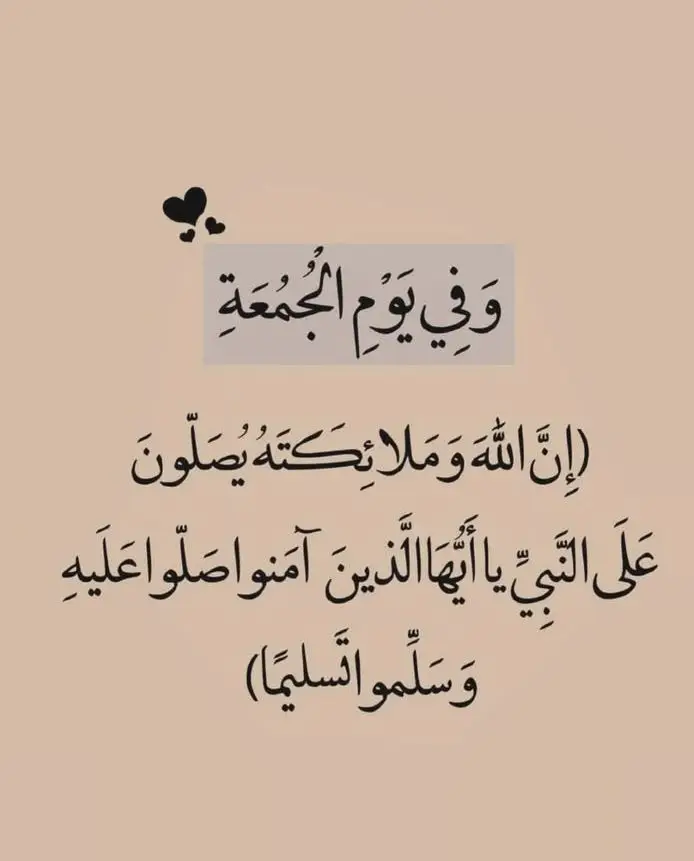 وَفِي يَوْمِ الْجُمُعَةِ
(إِنَّ اللَّهَ وَمَلائِكَتَهُ يُصَلّونَ
عَلَى النَّبِيِّ يا أَيُّهَا الَّذينَ آمَنوا صَلّوا عَلَيهِ
وَسَلِّموا تَسليمًا)